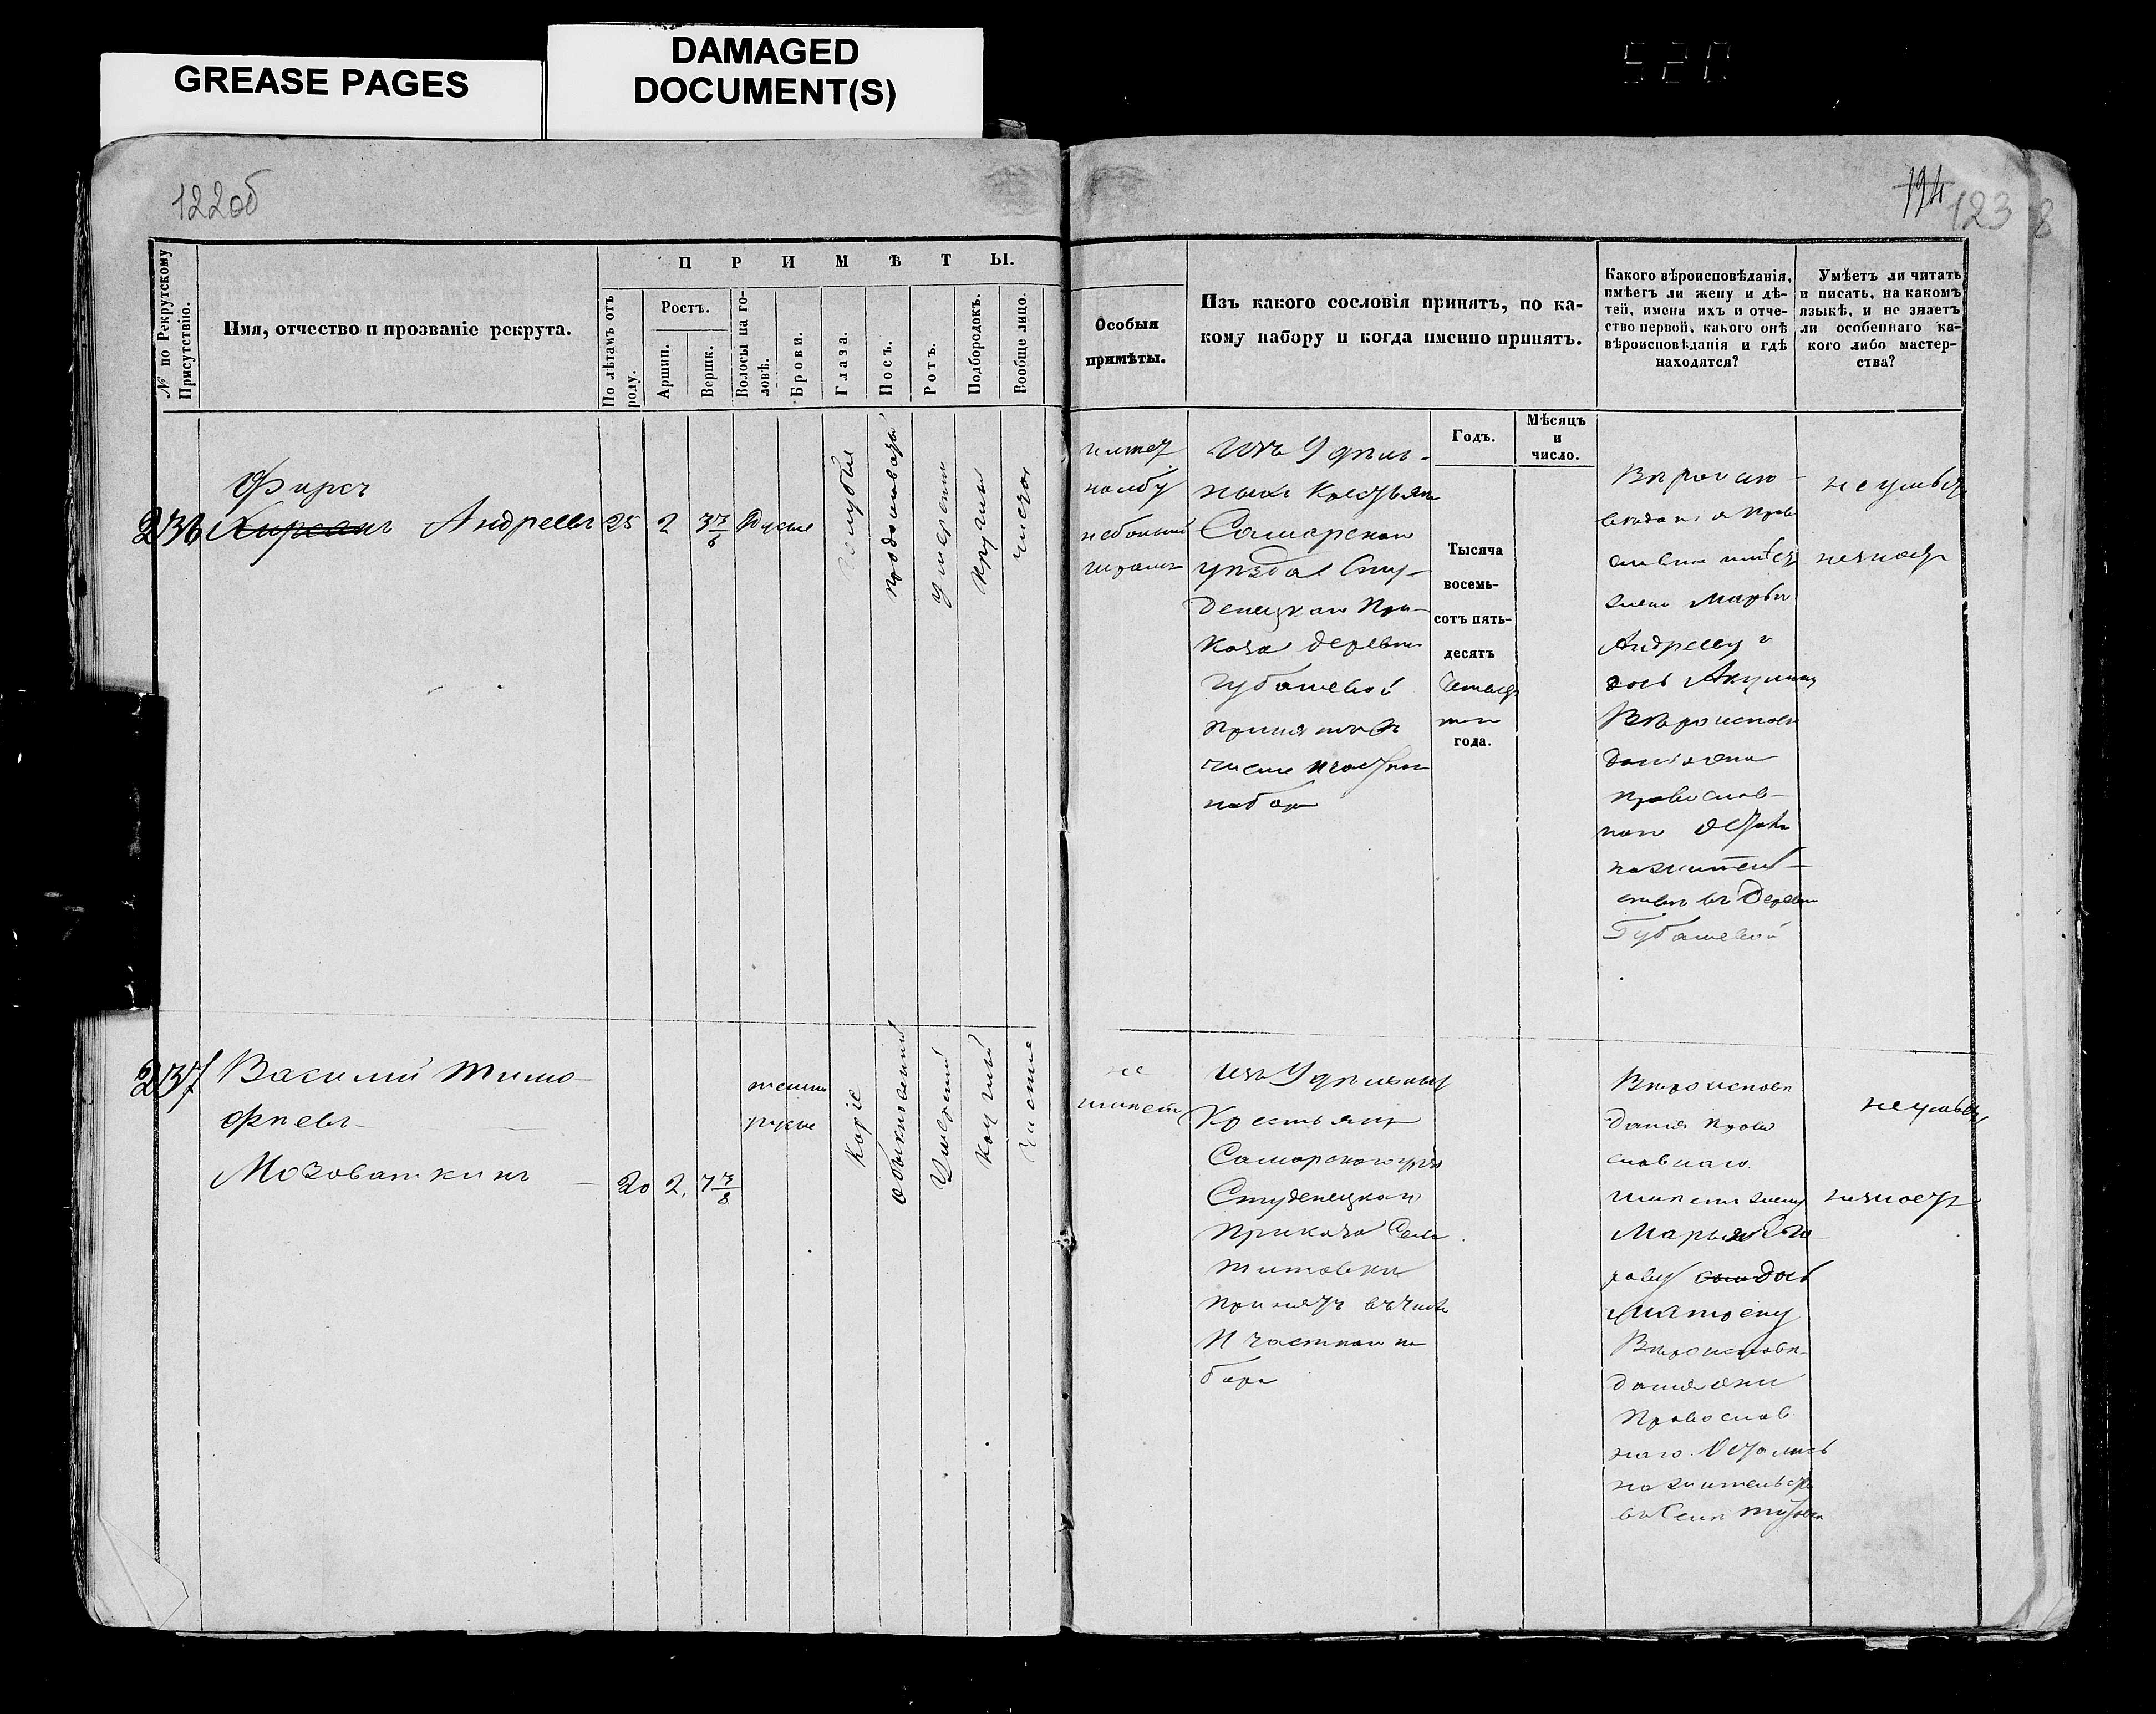 GREASE PAGES
DAMAGED
DOCUMENT(S)
520
122об
124
123
8
№ по Рекрутскому
Присутствію.
Имя, отчество и прозваніе рекрута.
П Р И М Ѣ Т Ы.
По лѣтамъ отъ
роду.
Ростъ.
Аршин.
Вершк.
Волосы на го-
ловѣ.
Брови.
Глаза.
Носъ.
Ротъ.
Подбородокъ.
Вообще лицо.
Особыя
примѣты.
Изъ какого сословія принятъ, по ка-
кому набору и когда именно принятъ.
Годъ.
Мѣсяцъ
и
число.
Какого вѣроисповѣданія,
имѣетъ ли жену и дѣ-
тей, имена ихъ и отче-
ство первой, какого онѣ
вѣроисповѣданія и гдѣ
находятся?
Умѣетъ ли читать
и писать, на какомъ
языкѣ, и не знаетъ
ли особеннаго ка-
кого либо мастер-
ства?
236
Фирсъ
Андреевъ
25
2
Русые
голубые
продолговатый
умеренный
круглый
чистое
имеет
на лбу
небольшой
шрамъ
Изъ Удѣль-
ныхъ Крестьянъ
Самарскаго
уѣзда Сту-
денецкаго При-
каза деревни
Губашевой
принятъ въ
числе частнаго
набора
Тысяча
восемь-
сотъ пять-
десятъ
четвер
таго
года.
Андрееву и
дочь Акулину
Вѣроисповѣ
данія она
православ-
наго
на житель-
стве въ Деревне
Губашевой
не умѣетъ
не знаетъ
237
Василий Тимо-
фѣевъ
20
2.
7 7/8
темно
русые
Каріе
обыкновенный
Умереный
Круглый
Чистое
не
имѣетъ
изъ Удѣльныхъ
Крестьянъ
Самарского уѣзда
Студенецкаго
Приказа Села
Титовки
принятъ въ число
частнаго на
бора
Вѣроисповѣ
данія право
славнаго.
имѣетъ жену
Марью Его
рову дочь
Матрену
Вѣроисповѣ-
данія они
Православ
наго. Остались
на жительстве
въ Селе Титовке
не умѣетъ
не знаетъ